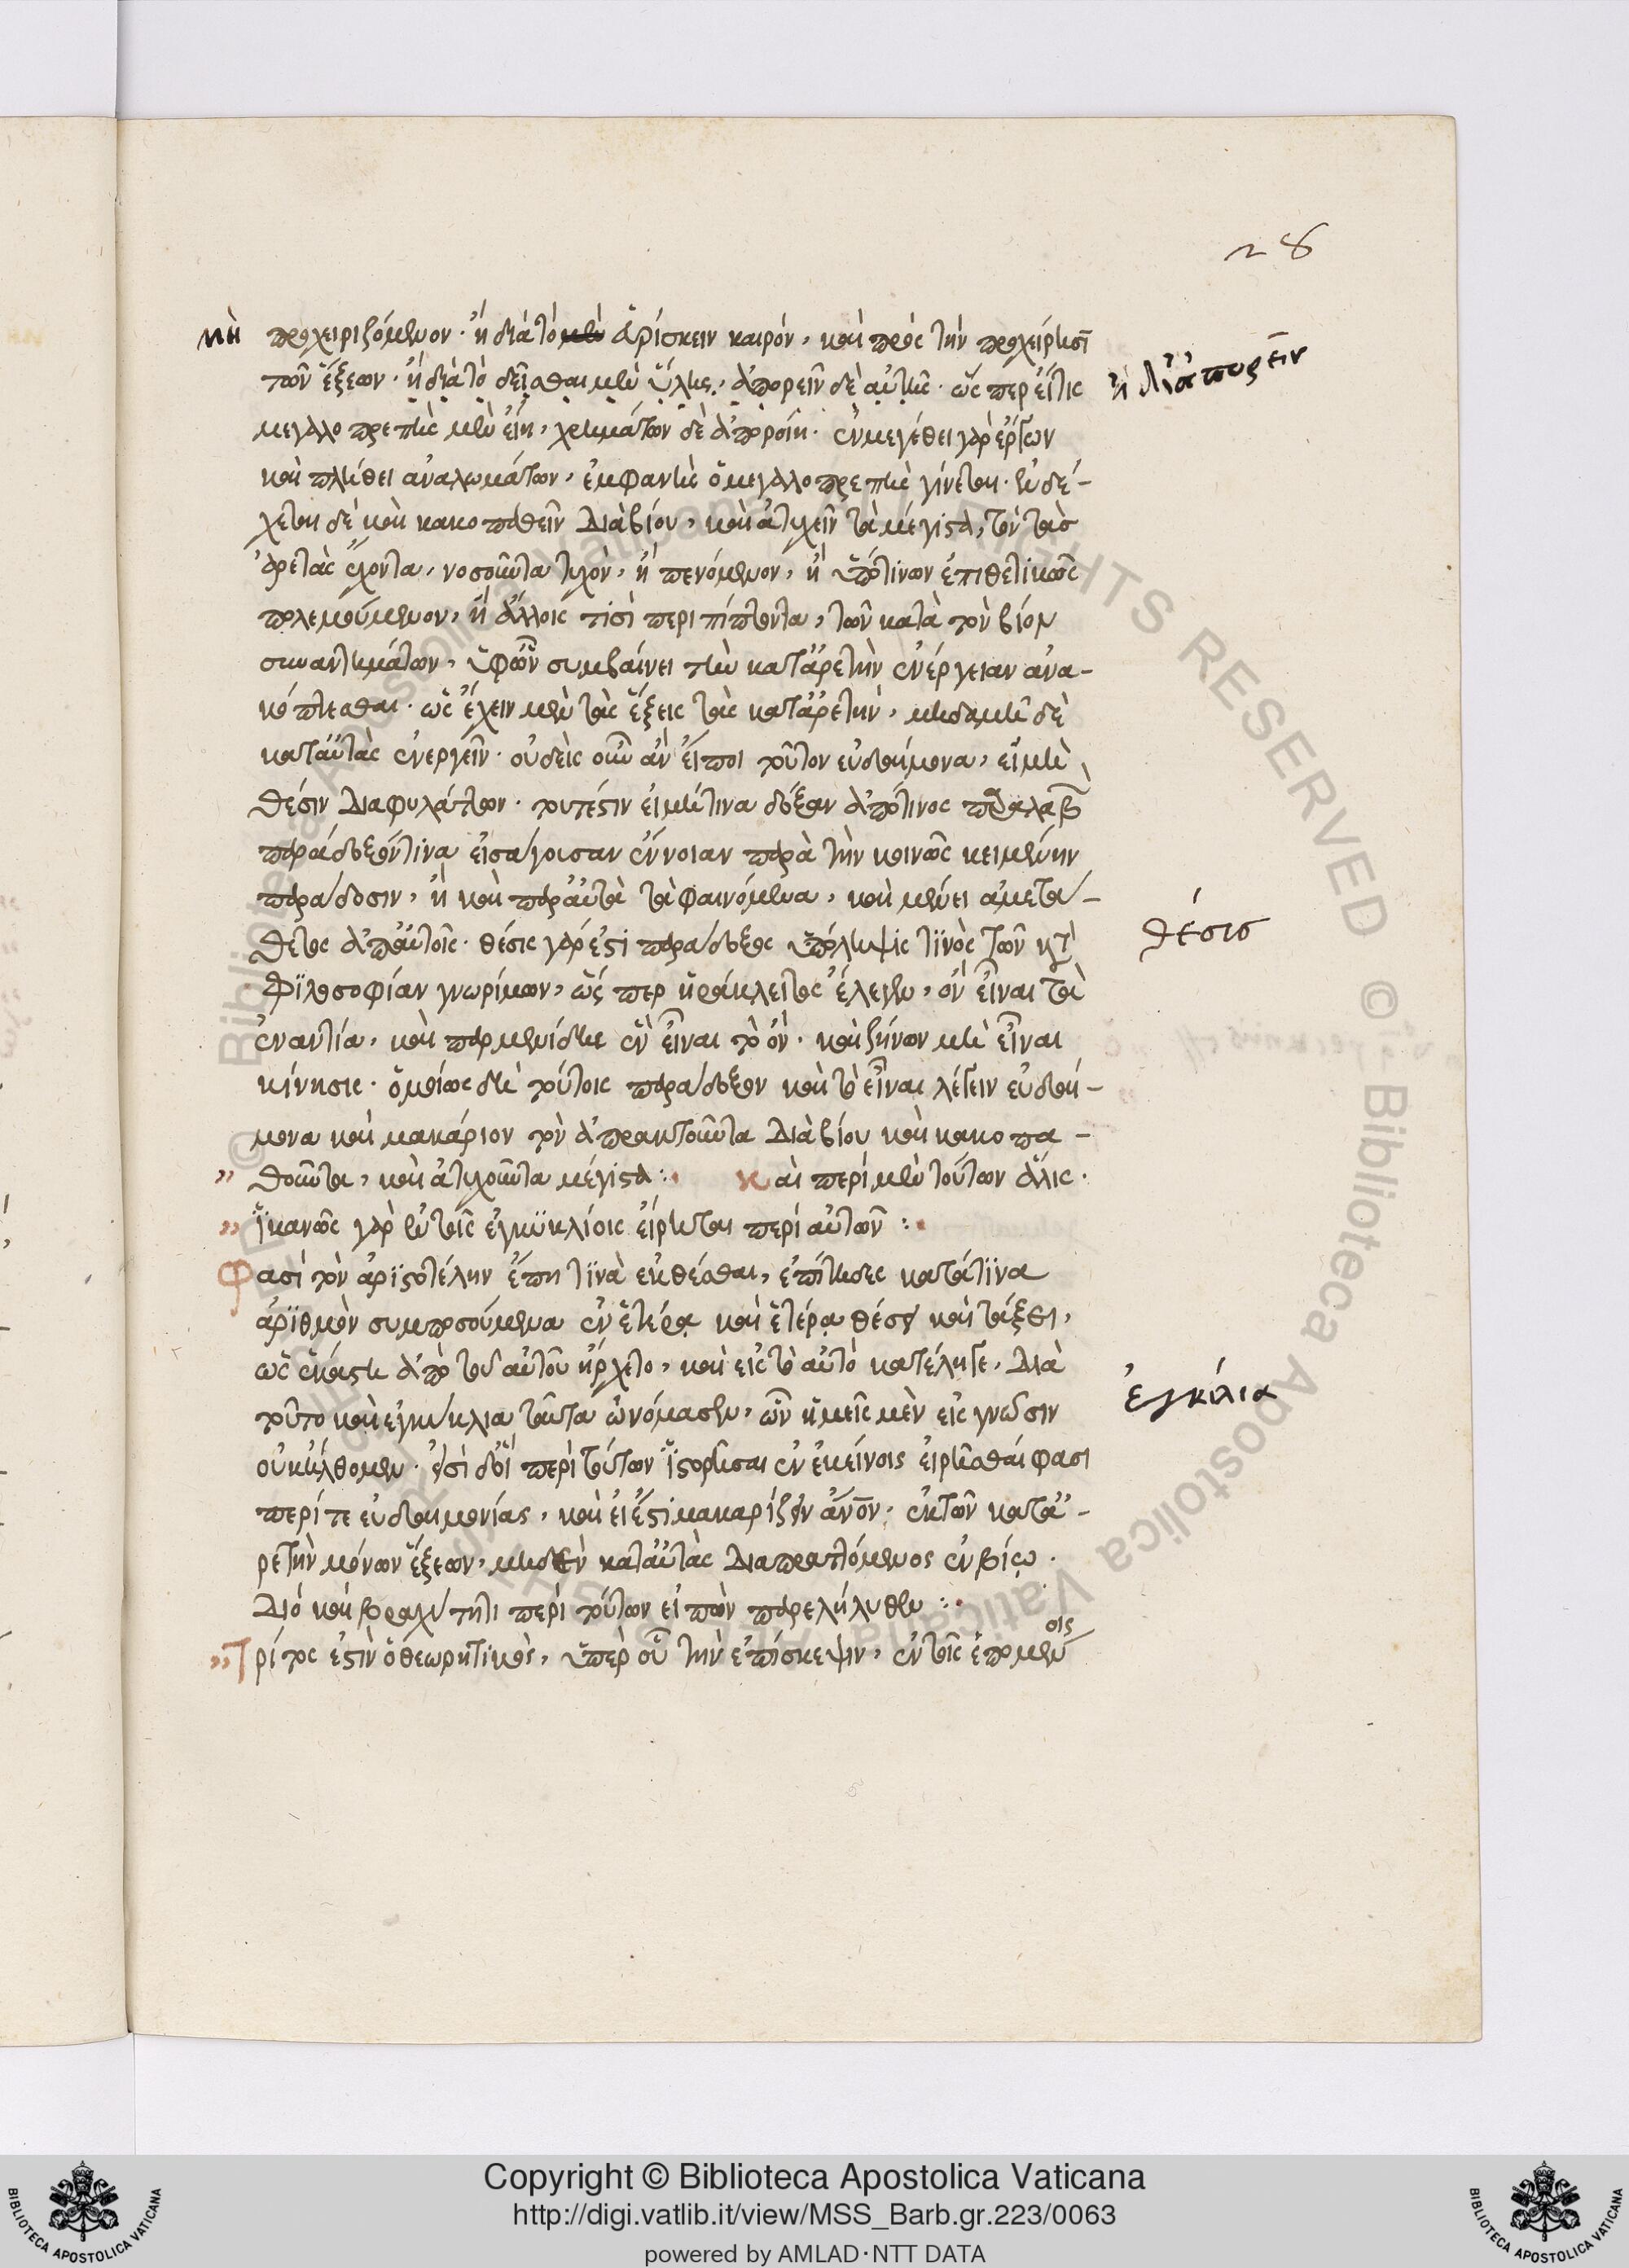 28
μὴ προχειριζόμενον· ἢ διὰ τὸ μὴ εὑρίσκειν καιρὸν, καὶ πρὸς τὴν προχείρισιν
τῶν ἕξεων· ἢ διὰ τὸ δεῖσθαι μὲν ὕλης, ἀπορεῖν δὲ αὐτῆς· ὥς περ εἴ τις
ἢ διὰ ἀπορεῖν
μεγαλοπρεπὴς μὲν εἴη, χρημάτων δὲ ἀποροίη· ἐν μεγέθει γὰρ ἔργων
καὶ πλήθει ἀναλωμάτων, ἐμφανὴς ὁ μεγαλοπρεπὴς γίνεται· ἐνδέ-
χεται δὲ καὶ κακοπαθεῖν διὰ βίου, καὶ ἀτυχεῖν τὰ μέγιστα, τὸν τὰς
ἀρετὰς ἔχοντα, νοσοῦντα τυχὸν, ἢ πενόμενον, ἢ ὑπό τινων ἐπιθετικῶς
πολεμούμενον, ἢ ἄλλοις τισὶ περιπίπτοντα, τῶν κατὰ τὸν βίον
συναντημάτων, ὑφ' ὧν συμβαίνει τὴν κατ' ἀρετὴν ἐνέργειαν ἀνα-
κόπτεσθαι· ὡς ἔχειν μὲν τὰς ἕξεις τὰς κατ' ἀρετὴν, μηδαμῆ δὲ
κατ' αὐτὰς ἐνεργεῖν· οὐδεὶς οὖν ἂν εἴποι τοῦτον εὐδαίμονα, εἰ μὴ
θέσιν διαφυλάττων· τουτέστιν εἰ μή τινα δόξαν ἀπό τινος παραλαβὼν
παράδοξόν τινα εἰσάγουσαν ἔννοιαν παρὰ τὴν κοινῶς κειμένην
παράδοσιν, ἢ καὶ παρ' αὐτὰ τὰ φαινόμενα, καὶ μένει ἀμετά-
θετος ἀπ' αὐτοῖς· θέσις γάρ ἐστι παράδοξος ὑπόληψις τινὸς τῶν κατὰ
θέσις
φιλοσοφίαν γνωρίμων, ὥς περ ἡράκλειτος ἔλεγεν, ὂν εἶναι τὰ
ἐναντία, καὶ παρμενίδης ἓν εἶναι τὸ ὄν· καὶ ζήνων μὴ εἶναι
κίνησις· ὁμοίως δὴ τούτοις παράδοξον καὶ τὸ εἶναι λέγειν εὐδαί-
μονα καὶ μακάριον τὸν ἀπρακτοῦντα διὰ βίου καὶ κακοπα-
" θοῦντα, καὶ ἀτυχοῦντα μέγιστα:· καὶ περὶ μὲν τούτων ἅλις·
" ἱκανῶς γὰρ ἐν τοῖς ἐγκυκλίοις εἴρηται περὶ αὐτῶν:·
φασὶ τὸν ἀριστοτέλην ἔπη τινὰ ἐκθέσθαι, ἐπὶ κατά τινα
ἀριθμὸν συμπροσούμενα ἐν ἑτέρα καὶ ἑτέρα θέσει καὶ τάξει,
ὡς ἑκάστη ἀπὸ τοῦ αὐτοῦ ἤρχετο, καὶ εἰς τὸ αὐτὸ κατέληγε, διὰ
τοῦτο καὶ ἐγκύκλια ταῦτα ὠνόμασεν, ὧν ἡμεῖς μὲν εἰς γνῶσιν
ἐγκύλια
οὐκ ἤλθομεν· οἱ περὶ τούτων ἱστορῆσαι ἐν ἐκείνοις εἰρῆσθαί φασι
περί τε εὐδαιμονίας, καὶ εἰ ἔστι μακαρίζειν ἄνον· ἐκ τῶν κατ' ἀ-
ρετὴν μόνων ἕξεων, μηδὲν κατ' αὐτὰς διαπραττόμενος ἐν βίῳ·
διὸ καὶ βραχύτητι περὶ τούτων εἰπὼν παρελήλυθεν:·
" Τρίτος ἐστὶν ὁ θεωρητικὸς, ὑπὲρ οὗ τὴν ἐπίσκεψιν, ἐν τοῖς ἑπομένοις
© Biblioteca Apostolica Vaticana - ALL RIGHTS RESERVED © Biblioteca Apostolica Vaticana
Copyright © Biblioteca Apostolica Vaticana
http://digi.vatlib.it/view/MSS_Barb.gr.223/0063
powered by AMLAD·NTT DATA
BIBLIOTECA APOSTOLICA VATICANA
BIBLIOTECA APOSTOLICA VATICANA